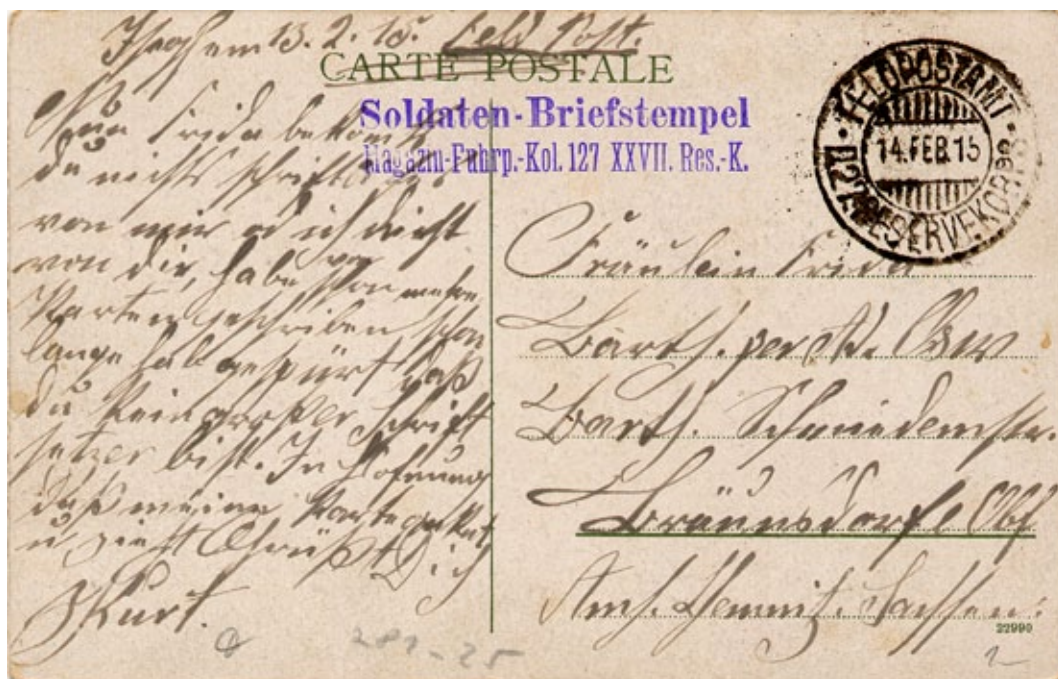 13.2.15. Feld Post.
CARTE POSTALE
Soldaten-Briefstempel
Magazin-Fuhrp.-Kol. 127 XXVII. Res.-K.
FELDPOSTAMT
14.FEB.15
RESERVEKORPS
Nun Frida bekom
du nichts schriftlich
von mir od ich nicht
von dir, habe schon mehre
Karten geschrieben schon
lange hab gespürt daß
du kein großer Schrift
setzer bist. In Hofnung
daß meine Karte
u. Grüßt Dich
Kurt.
Fräulein Frida
Barth.
Barth. Schmiedemstr.
Bräunsdorf
Amh. Chemnitz. Sachsen.
22990
281-25